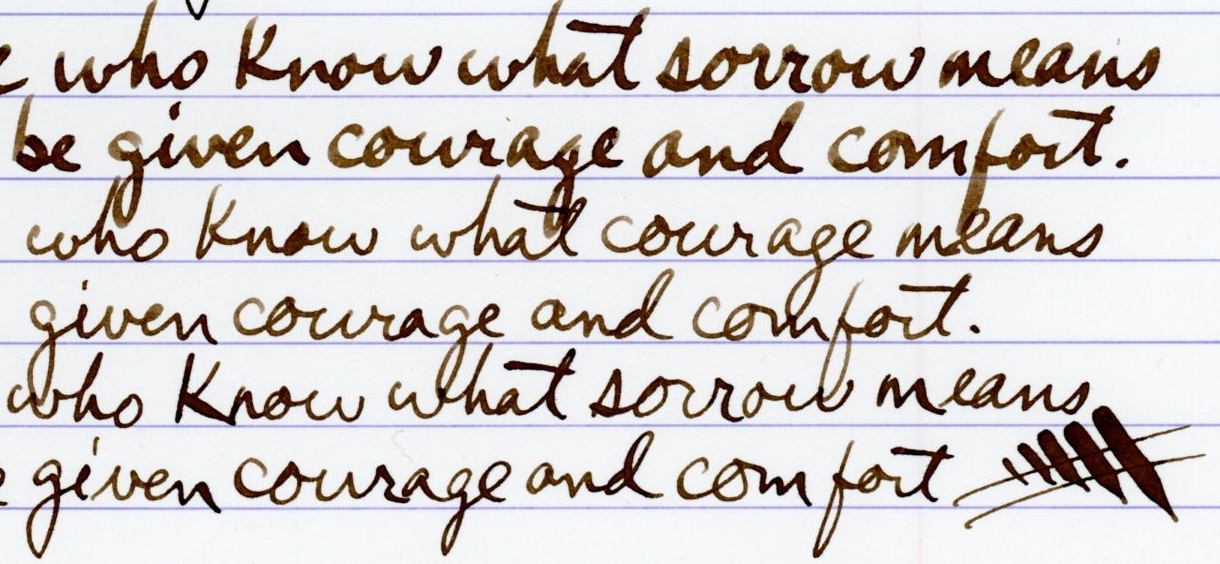 who Know what sorrow means
be given courage and comfort.
who Know what courage means
given courage and comfort.
who Know what sorrow means
given courage and comfort